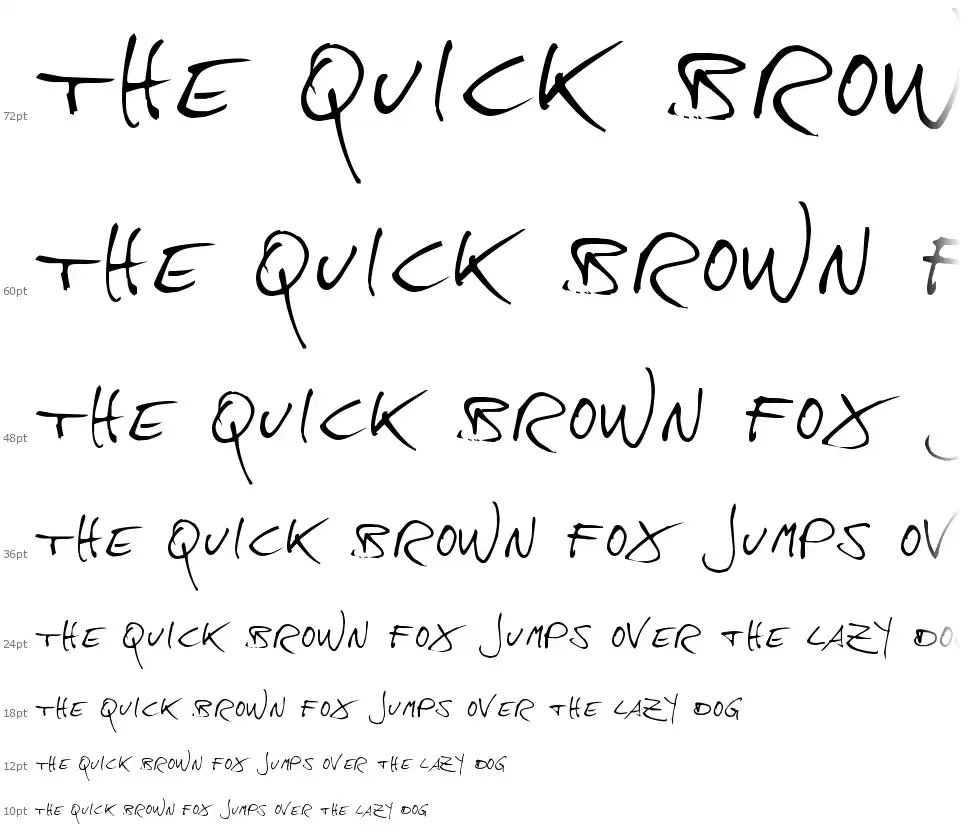 72pt THE QUICK BROW
60pt THE QUICK BROWN F
48pt THE QUICK BROWN FOX J
36pt THE QUICK BROWN FOX JUMPS OV
24pt THE QUICK BROWN FOX JUMPS OVER THE LAZY DO
18pt THE QUICK BROWN FOX JUMPS OVER THE LAZY DOG
12pt THE QUICK BROWN FOX JUMPS OVER THE LAZY DOG
10pt THE QUICK BROWN FOX JUMPS OVER THE LAZY DOG